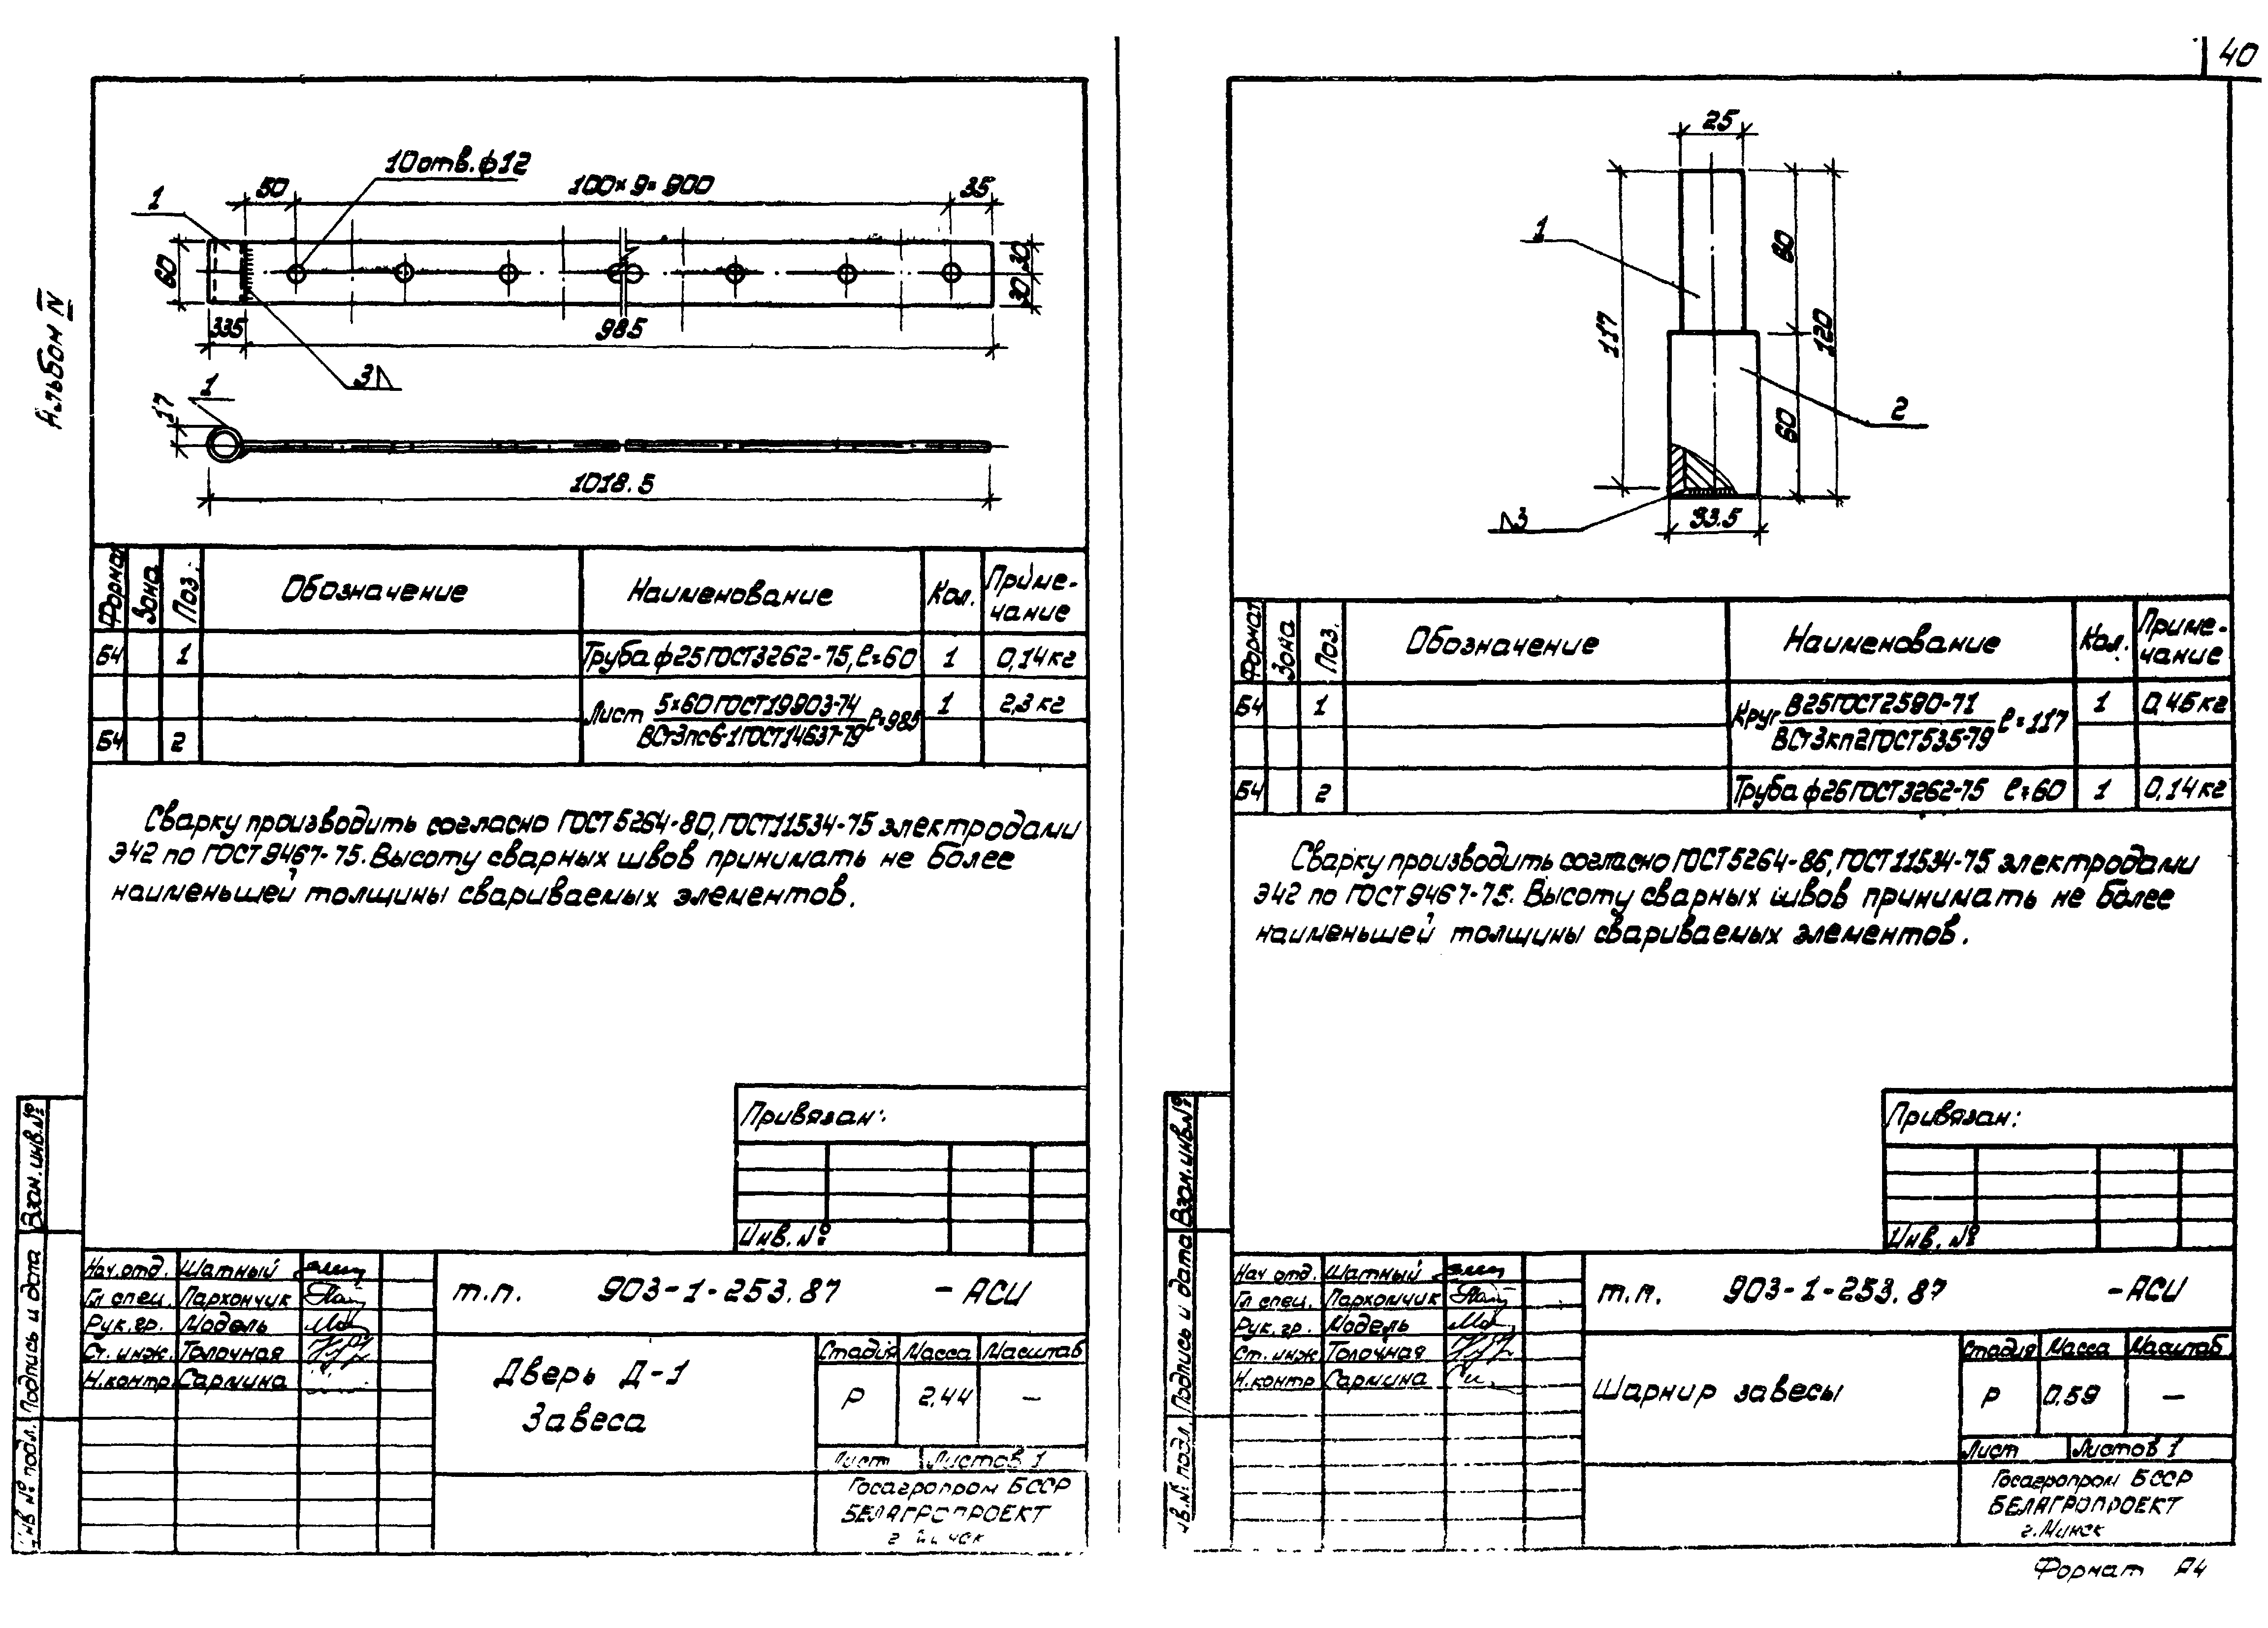 40
Альбом IV
10отв.ф12
1
50
100×9=900
35
60
30
30
33.5
985
3
1
17
1018.5
Формат
Зона
Поз.
Обозначение
Наименование
Кол.
Приме-
чание
Б4 1 Труба ф25 ГОСТ3262-75, ℓ=60 1 0,14кг
Лист 5×60 ГОСТ19903-74 ℓ=985 1 2,3кг
ВСт3пс6-1 ГОСТ14637-79
Б4 2
Сварку производить согласно ГОСТ5264-80, ГОСТ11534-75 электродами
Э42 по ГОСТ9467-75. Высоту сварных швов принимать не более
наименьшей толщины свариваемых элементов.
Привязан:
Инв.№
Взам.инв.№
Подпись и дата
Инв № подл.
Нач.отд. Шатный
Гл спец. Пархончик
Рук.гр. Модель
Ст.инж. Толочная
Н.контр Сармина
т.п. 903-1-253.87 -АСИ
Дверь Д-1
Завеса
Стадия Масса Масштаб
Р 2,44 —
Лист Листов 1
Госагропром БССР
БЕЛАГРОПРОЕКТ
г. Минск
25
1
117
80
120
60
2
3
33.5
Формат
Зона
Поз.
Обозначение
Наименование
Кол.
Приме-
чание
Б4 1 Круг В25 ГОСТ2590-71 ℓ=117 1 0,45кг
ВСт3кп2 ГОСТ535-79
Б4 2 Труба ф25 ГОСТ3262-75 ℓ=60 1 0,14кг
Сварку производить согласно ГОСТ5264-86, ГОСТ11534-75 электродами
Э42 по ГОСТ9467-75. Высоту сварных швов принимать не более
наименьшей толщины свариваемых элементов.
Привязан:
Инв.№
Взам.инв.№
Подпись и дата
Инв.№ подл.
Нач отд. Шатный
Гл спец. Пархончик
Рук.гр. Модель
Ст.инж Толочная
Н.контр Сармина
т.п. 903-1-253.87 -АСИ
Шарнир завесы
Стадия Масса Масштаб
Р 0,59 —
Лист Листов 1
Госагропром БССР
БЕЛАГРОПРОЕКТ
г.Минск
Формат А4